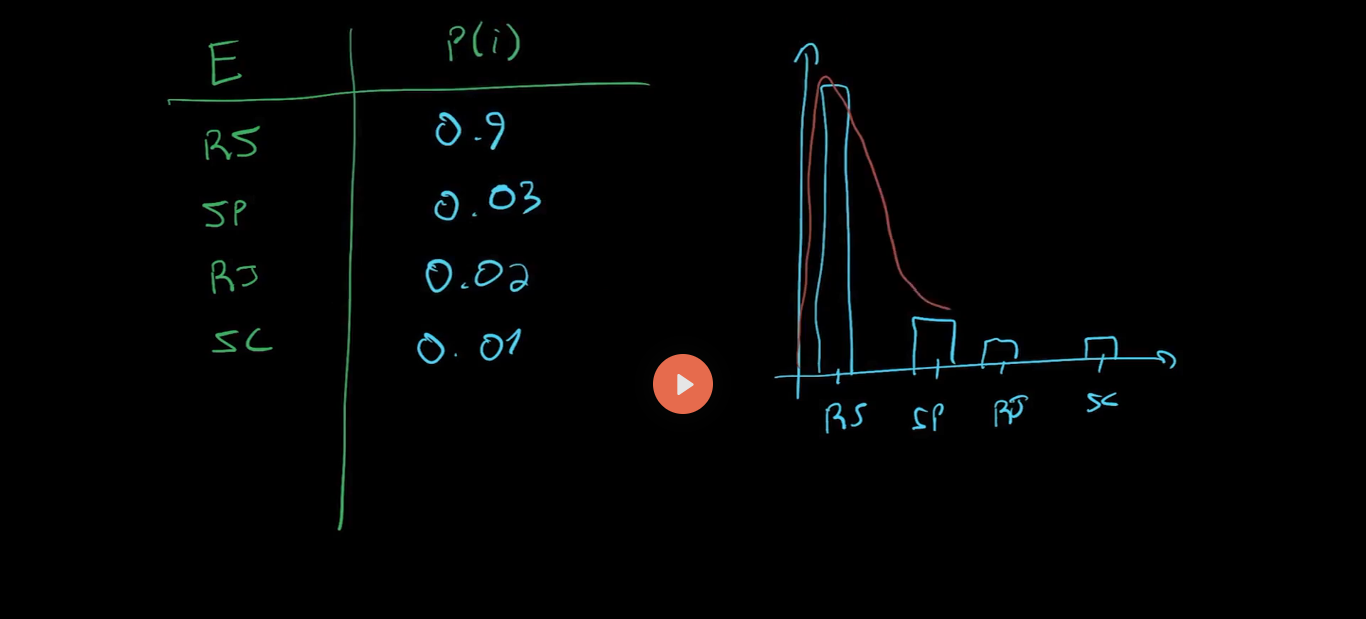 E P(i)
RS 0.9
SP 0.03
RJ 0.02
SC 0.01
RS SP RJ SC